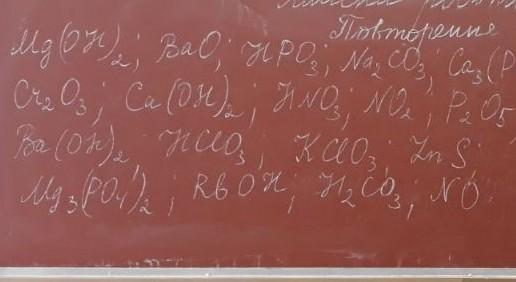 Повторение
Mg(OH)₂; BaO; HPO₃; Na₂CO₃; Ca₃(P
Cr₂O₃; Ca(OH)₂; HNO₃; NO₂; P₂O₅
Ba(OH)₂ HClO₃; KClO₃; ZnS
Mg₃(PO₄)₂; RbOH; H₂CO₃; NO